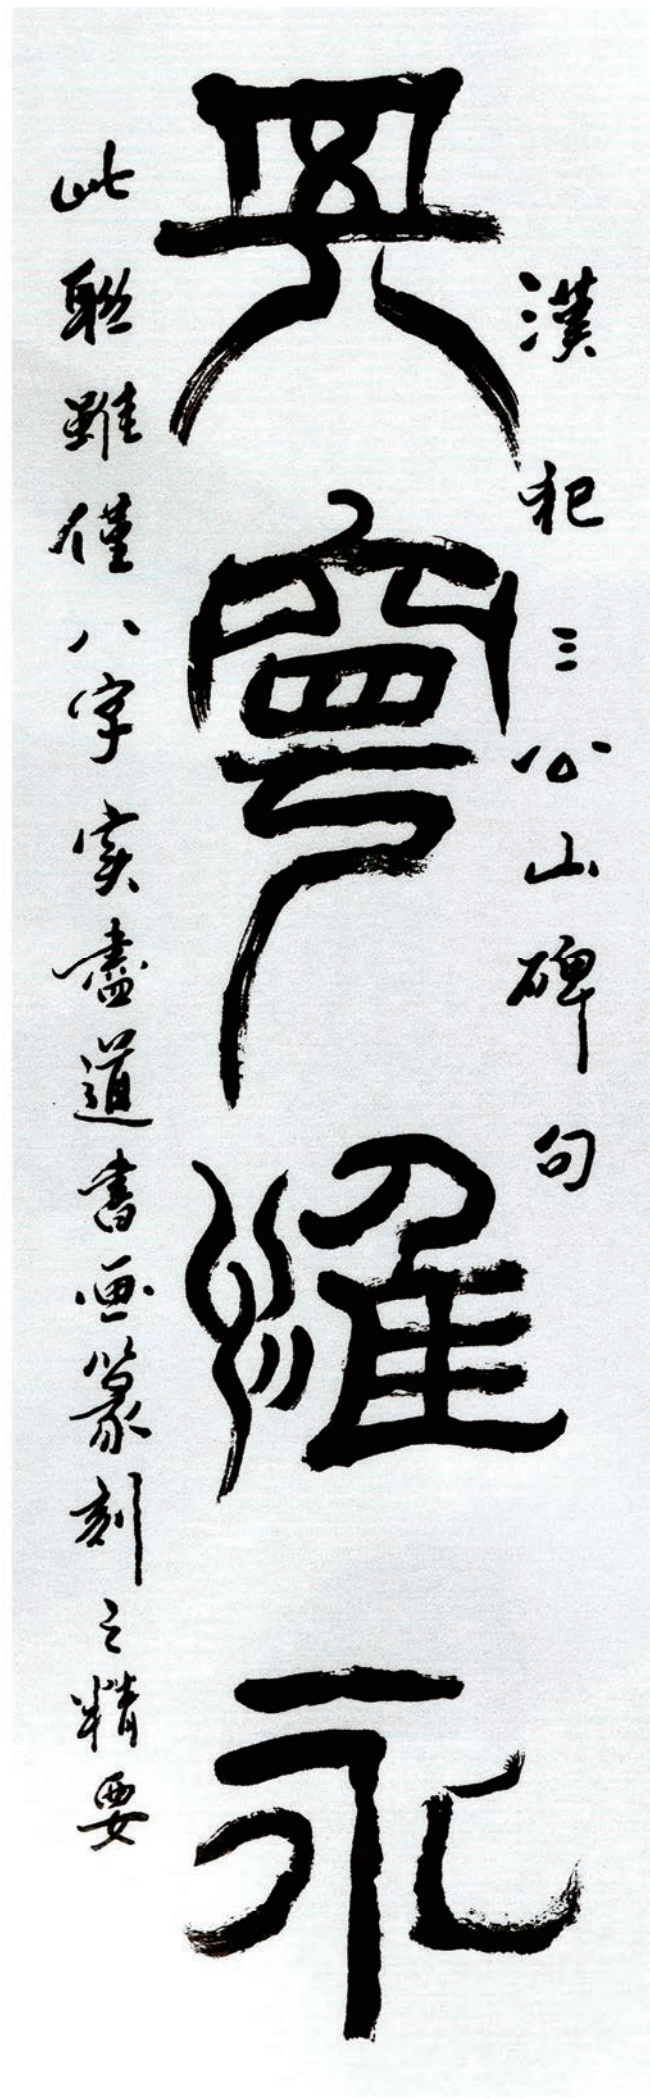 漢祀三公山碑句
其寧維永
此聯雖僅八字实盡道書画篆刻之精要